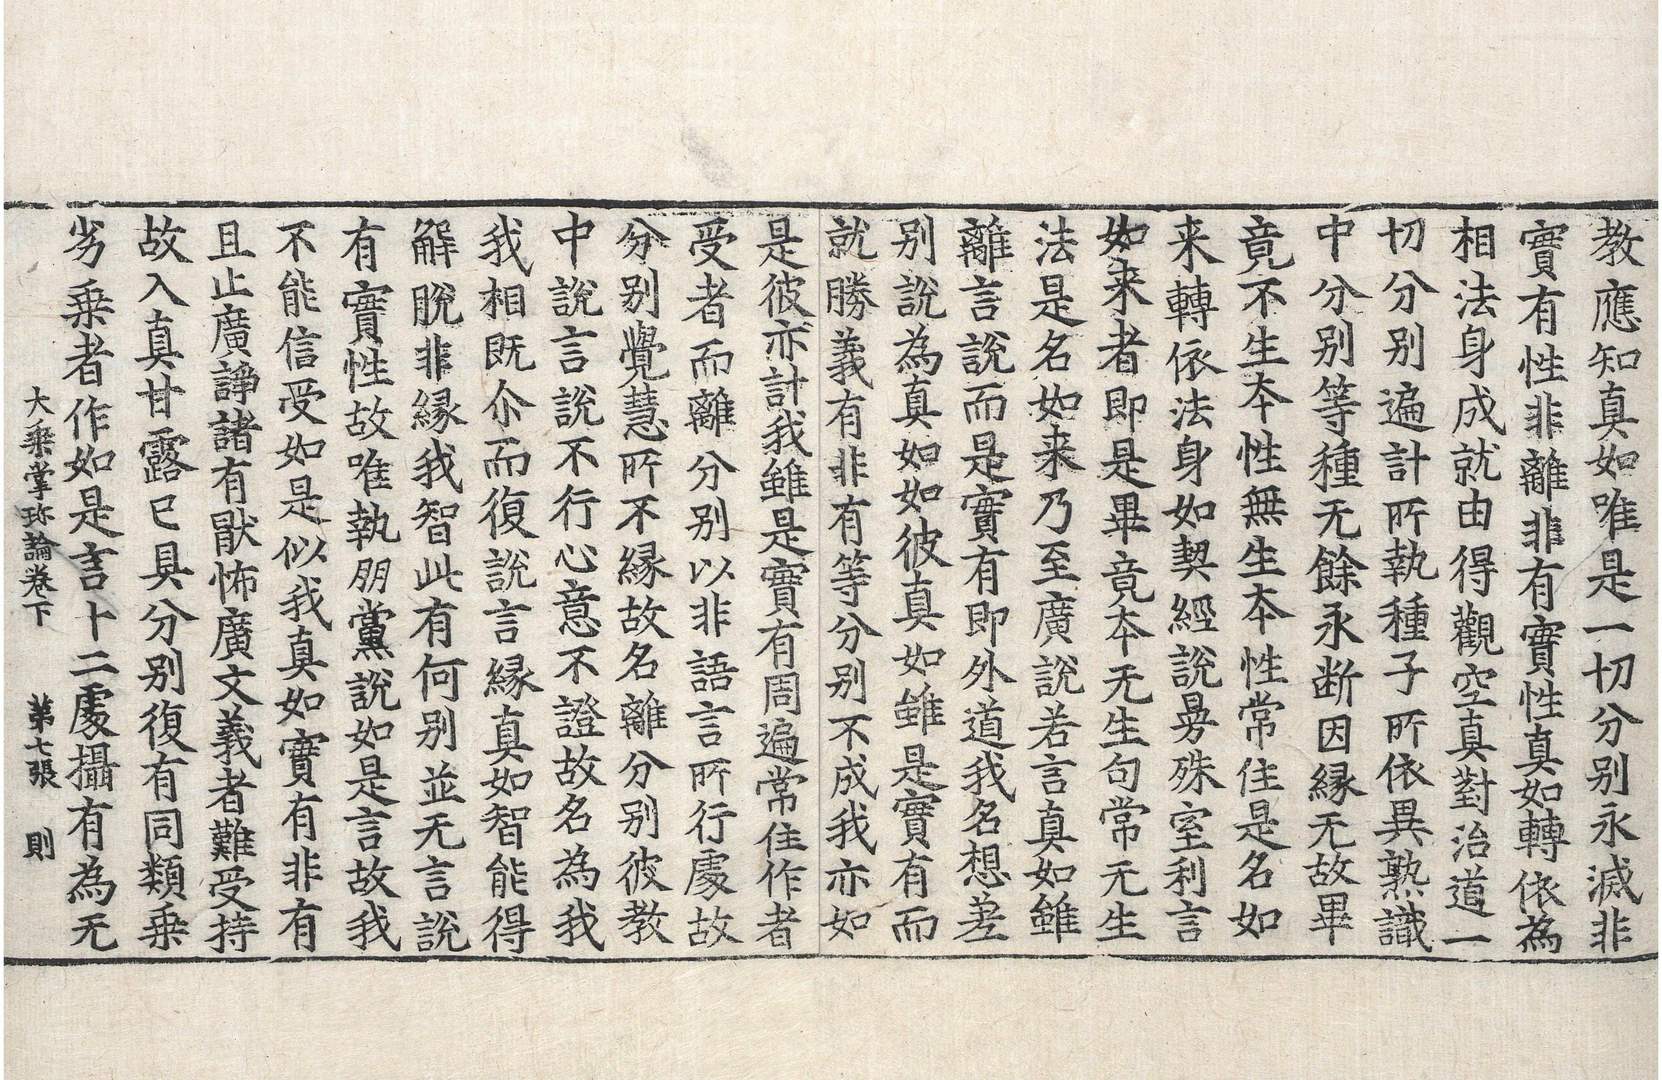 教應知真如唯是一切分别永滅非
實有性非離非有實性真如轉依為
相法身成就由得觀空真對治道一
切分别遍計所執種子所依異熟識
中分别等種无餘永断因縁无故畢
竟不生本性無生本性常住是名如
来轉依法身如契經說㬅殊室利言
如来者即是畢竟本无生句常无生
法是名如来乃至廣說若言真如雖
離言說而是實有即外道我名想差
别說為真如如彼真如雖是實有而
就勝義有非有等分别不成我亦如
是彼亦計我雖是實有周遍常住作者
受者而離分别以非語言所行處故
分别覺慧所不縁故名離分别彼教
中說言說不行心意不證故名為我
我相既尒而復說言縁真如智能得
解脫非縁我智此有何别並无言說
有實性故唯執朋黨說如是言故我
不能信受如是似我真如實有非有
且止廣諍諸有猒怖廣文義者難受持
故入真甘露已具分别復有同類乗
劣乗者作如是言十二處攝有為无
大乗掌珎論卷下 第七張 則